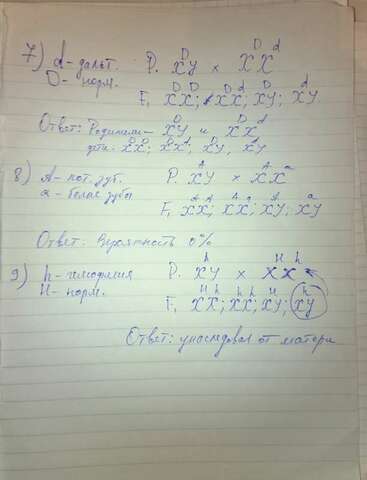 7) d - дальт. P. X^D Y × X^D X^d
D - норм.
F₁ X^D X^D; X^D X^d; X^D Y; X^d Y
Ответ: Родители - X^D Y и X^D X^d
дети: X^D X^D; X^D X^d; X^D Y, X^d Y
8) A - пот. зуб. P. X^A Y × X^A X^a
a - белые зубы
F₁ X^A X^A; X^A X^a; X^A Y; X^a Y
Ответ: Вероятность 0%
9) h - гемофилия P. X^h Y × X^H X^h
H - норм.
F₁ X^H X^h; X^h X^h; X^H Y; X^h Y
Ответ: унаследовал от матери